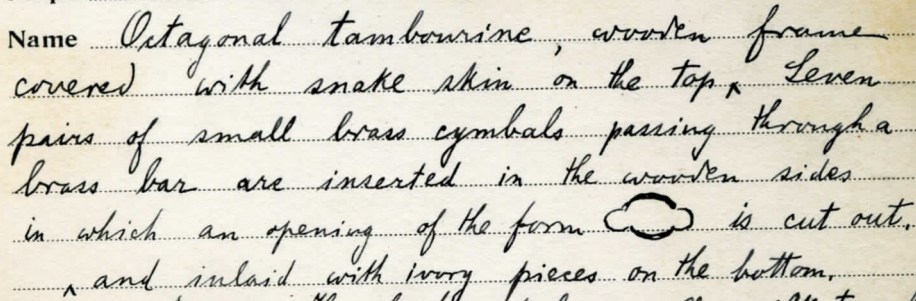 Name Octagonal tambourine, wooden frame
covered with snake skin on the top‸ Seven
pairs of small brass cymbals passing through a
brass bar are inserted in the wooden sides
in which an opening of the form is cut out.
‸ and inlaid with ivory pieces on the bottom.